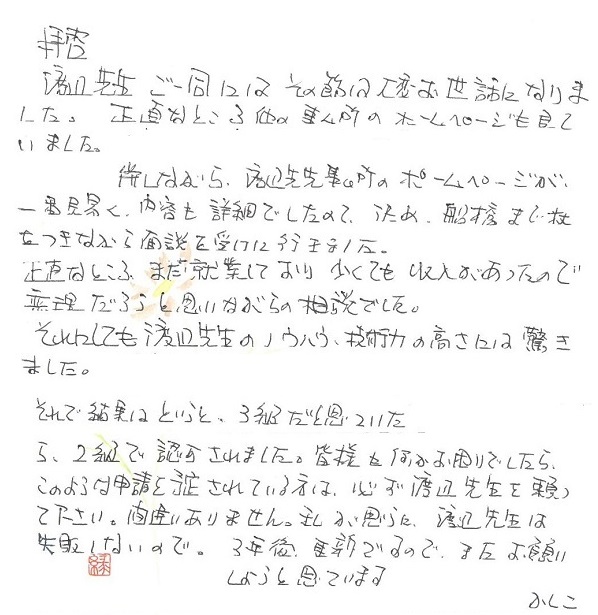 拝啓
渡辺先生ご一同にはその節は大変お世話になりま
した。正直なところ他の事ム所のホームページも見て
いました。
併しながら、渡辺先生事ム所のホームページが、
一番見易く、内容も詳細でしたので、決め、船橋まで杖
をつきながら面談を受けに行きました。
正直なところ、まだ就業しており少くても収入があったので
無理だろうと思いながらの相談でした。
それにしても渡辺先生のノウハウ、技術力の高さには驚き
ました。
それで結果はというと、3級だと思っていた
ら、2級で認可されました。皆様も何かお困りでしたら、
このような申請を予定されている方は、必ず渡辺先生を頼っ
て下さい。間違いありません。私が思うに、渡辺先生は
失敗しないので。3年後、更新でるので、またお願い
しようと思っています
かしこ
緑